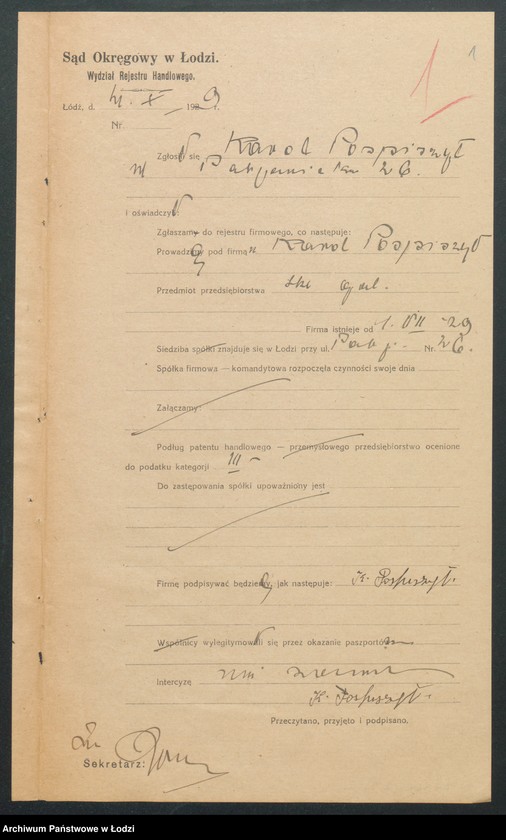 1
1
Sąd Okręgowy w Łodzi.
Wydział Rejestru Handlowego.
Łódź, d. X 1929 r.
Nr.
Zgłosił się Karol Pospiszył
Pabjanicka 26.
i oświadczył:
Zgłaszam do rejestru firmowego, co następuje:
Prowadzę pod firmą „ Karol Pospiszył
Przedmiot przedsiębiorstwa
Firma istnieje od 1. VII 29
Siedziba spółki znajduje się w Łodzi przy ul. Pabj. Nr. 26.
Spółka firmowa — komandytowa rozpoczęła czynności swoje dnia
Załączamy:
Podług patentu handlowego — przemysłowego przedsiębiorstwo ocenione
do podatku kategorji III —
Do zastępowania spółki upoważniony jest
Firmę podpisywać będę, jak następuje: K. Pospiszył.
Wspólnicy wylegitymował się przez okazanie paszportów
Intercyzę nie
K. Pospiszył.
Przeczytano, przyjęto i podpisano.
Sekretarz:
Archiwum Państwowe w Łodzi